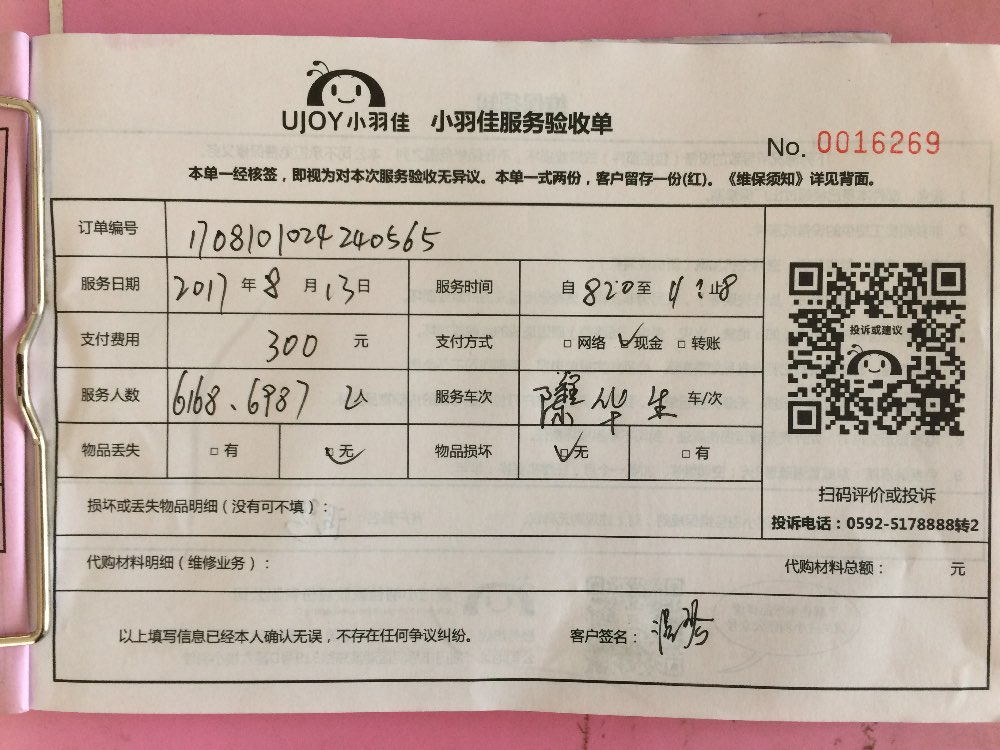 UJOY小羽佳 小羽佳服务验收单
No. 0016269
本单一经核签，即视为对本次服务验收无异议。本单一式两份，客户留存一份(红)。《维保须知》详见背面。
订单编号 1708101024240565
服务日期 2017 年 8 月 13 日 服务时间 自 820 至 止
支付费用 300 元 支付方式 □ 网络 □ 现金 □ 转账
服务人数 6168、6987 2人 服务车次 华生 车/次
物品丢失 □ 有 □ 无 物品损坏 □ 无 □ 有
投诉或建议
扫码评价或投诉
投诉电话：0592-5178888转2
损坏或丢失物品明细（没有可不填）：
代购材料明细（维修业务）： 代购材料总额： 元
以上填写信息已经本人确认无误，不存在任何争议纠纷。 客户签名：